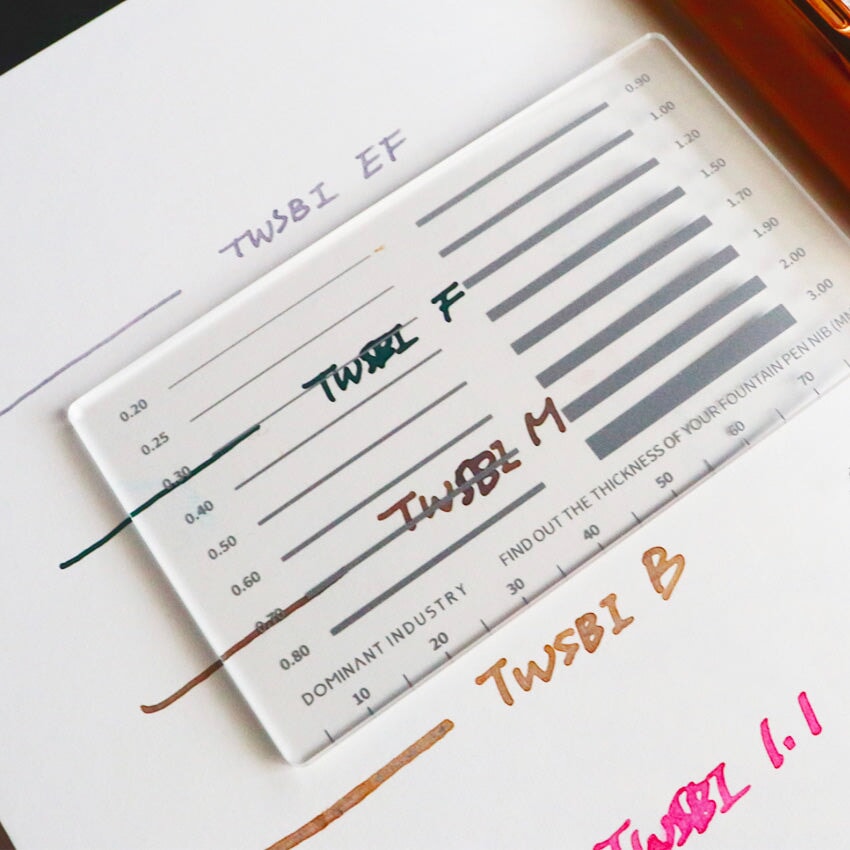 TWSBI EF
0.90
1.00
1.20
1.50
1.70
1.90
2.00
3.00
0.20
0.25
0.30
0.40
0.50
0.60
0.70
0.80
TWSBI F
TWSBI M
DOMINANT INDUSTRY
FIND OUT THE THICKNESS OF YOUR FOUNTAIN PEN NIB (MM
10 20 30 40 50 60 70
TWSBI B
TWSBI 1.1